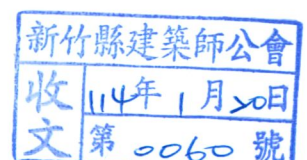 新竹縣建築師公會
收文
114年1月20日
第0060號